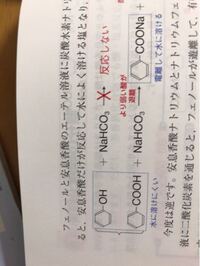 フェノールと安息香酸のエーテル溶液に炭酸水素ナトリ
ると、安息香酸だけが反応して水によく溶ける塩となり、
OH + NaHCO₃ 反応しない
より弱い酸が
遊離
COOH + NaHCO₃ → COONa +
水に溶けにくい
電離して水に溶ける
今度は逆です。安息香酸ナトリウムとナトリウムフェ
液に二酸化炭素を通じると、フェノールが遊離して、有